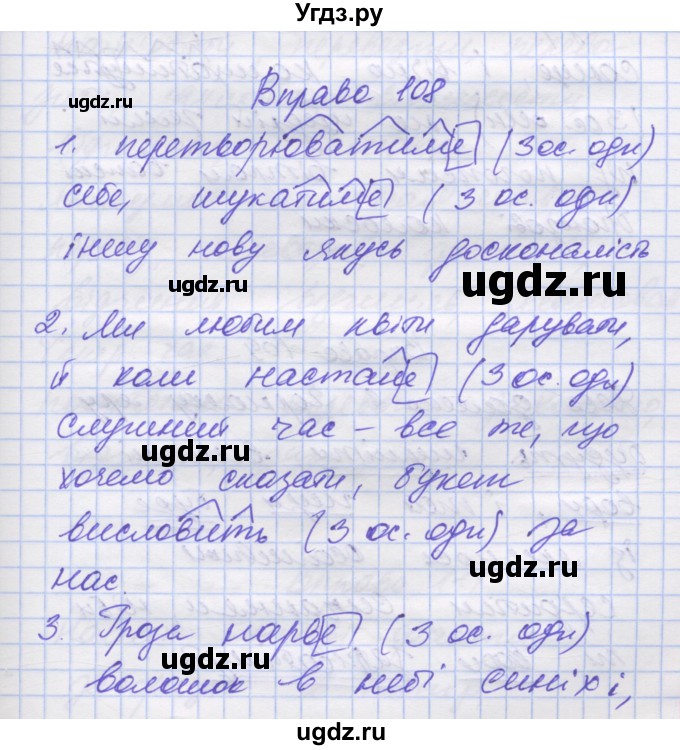 Угдз.ру
Вправа 108
ugdz.ru
1. перетворюватиме (3 ос. одн)
себе, шукатиме (3 ос. одн)
іншу нову якусь досконалість
ugdz.ru
ugdz.ru
2. Ми любим квіти дарувати,
й коли настане (3 ос. одн)
ugdz.ru
слушний час – все те, що
ugdz.ru
хочемо сказати, букет
ugdz.ru
висловить (3 ос. одн) за
нас.
ugdz.ru
3. Гроза нарве (3 ос. одн)
ugdz.ru
волошок в небі синіх і,
ugdz.ru
ugdz.ru